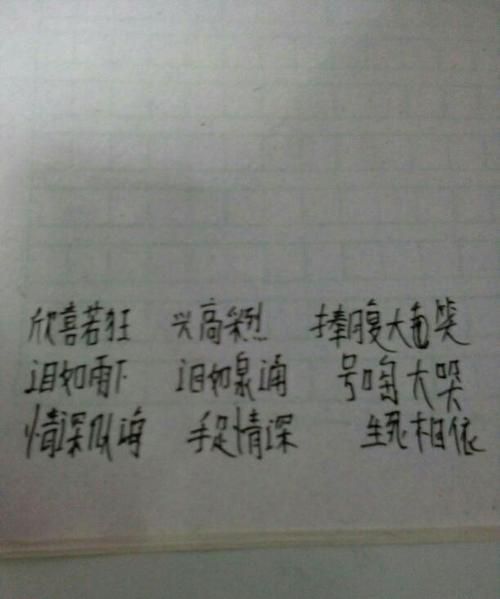 欣喜若狂 兴高采烈 捧腹大笑
泪如雨下 泪如泉涌 号啕大哭
情深似海 手足情深 生死相依